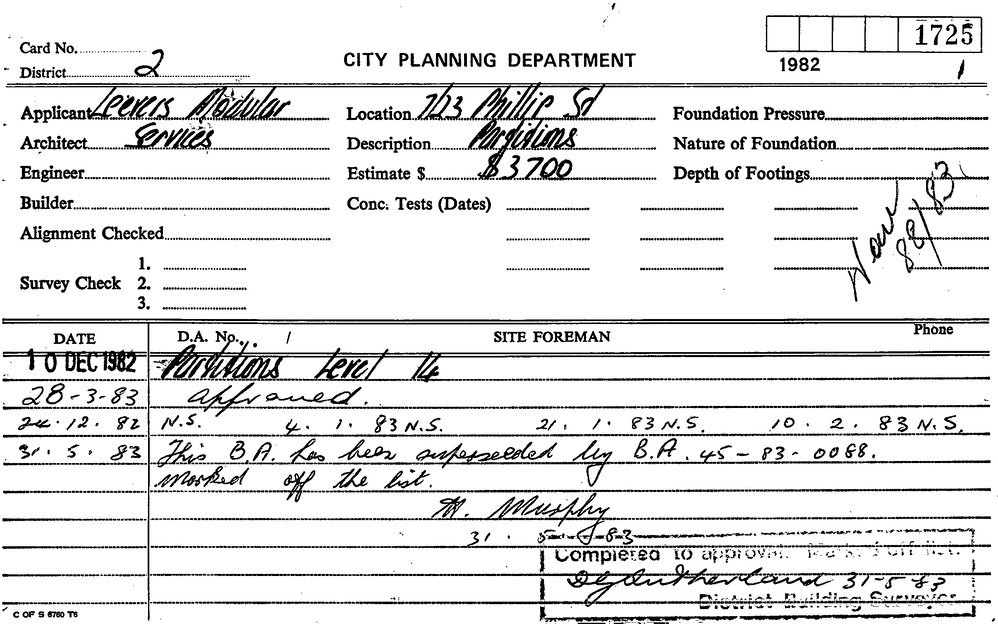 1725
Card No.
CITY PLANNING DEPARTMENT
1982
1
District 2
Applicant Leevers Modular
Location 7/23 Phillip St
Foundation Pressure
Architect Services
Description Partitions
Nature of Foundation
Engineer
Estimate $ $3700
Depth of Footings
Builder
Conc. Tests (Dates)
Now 88/83
Alignment Checked
1.
Survey Check 2.
3.
DATE D.A. No. / SITE FOREMAN Phone
10 DEC 1982 Partitions Level 14
28-3-83 approved.
24.12.82 N.S. 4. 1. 83 N.S. 21. 1. 83 N.S. 10. 2. 83 N.S.
31. 5. 83 This B.A. has been superseeded by B.A. 45-83-0088.
marked off the list.
M. Murphy
31. 5-83
Completed to approval. Marked off list.
D G Sutherland 31-5-83
District Building Surveyor
C OF S 6760 T6